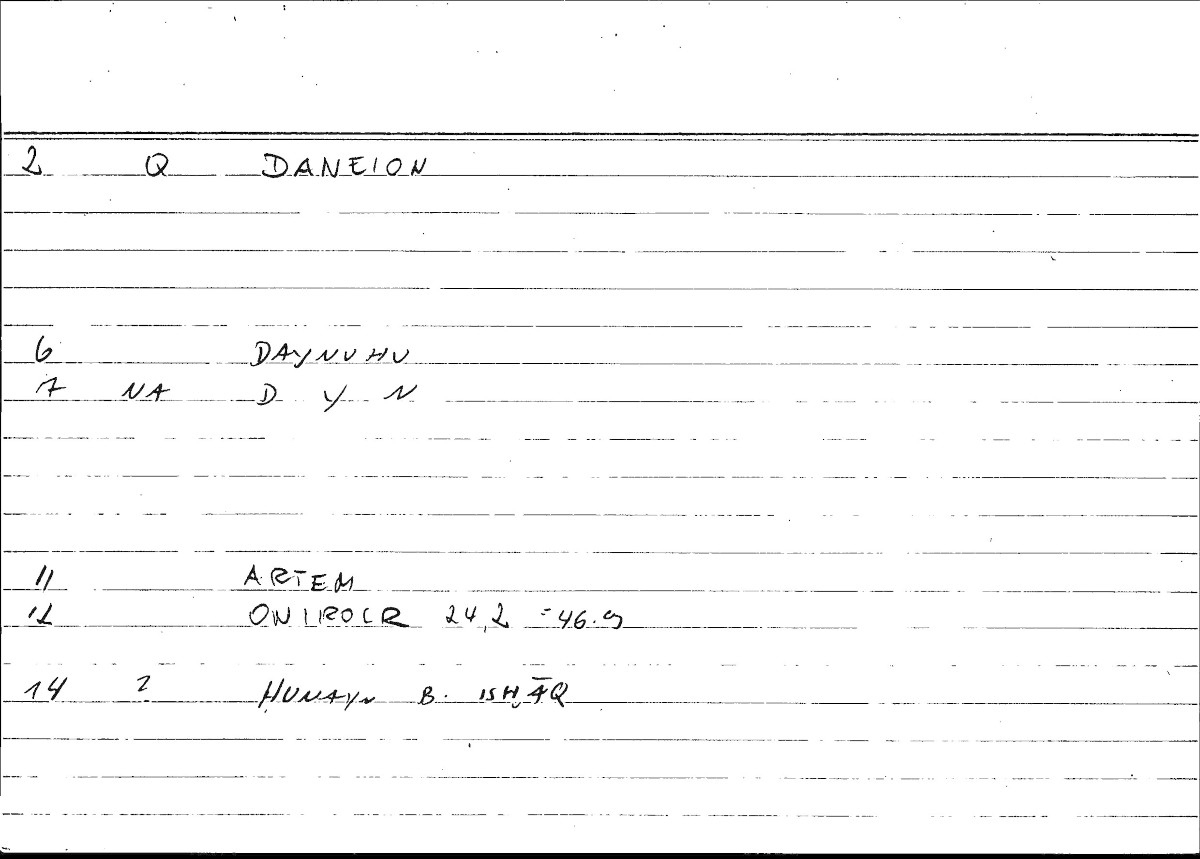 2 Q DANEION
6 DAYNUHU
7 NA D Y N
11 ARTEM
12 ONIROCR 24,2 = 46.9
14 2 ḤUNAYN B. ISḤĀQ